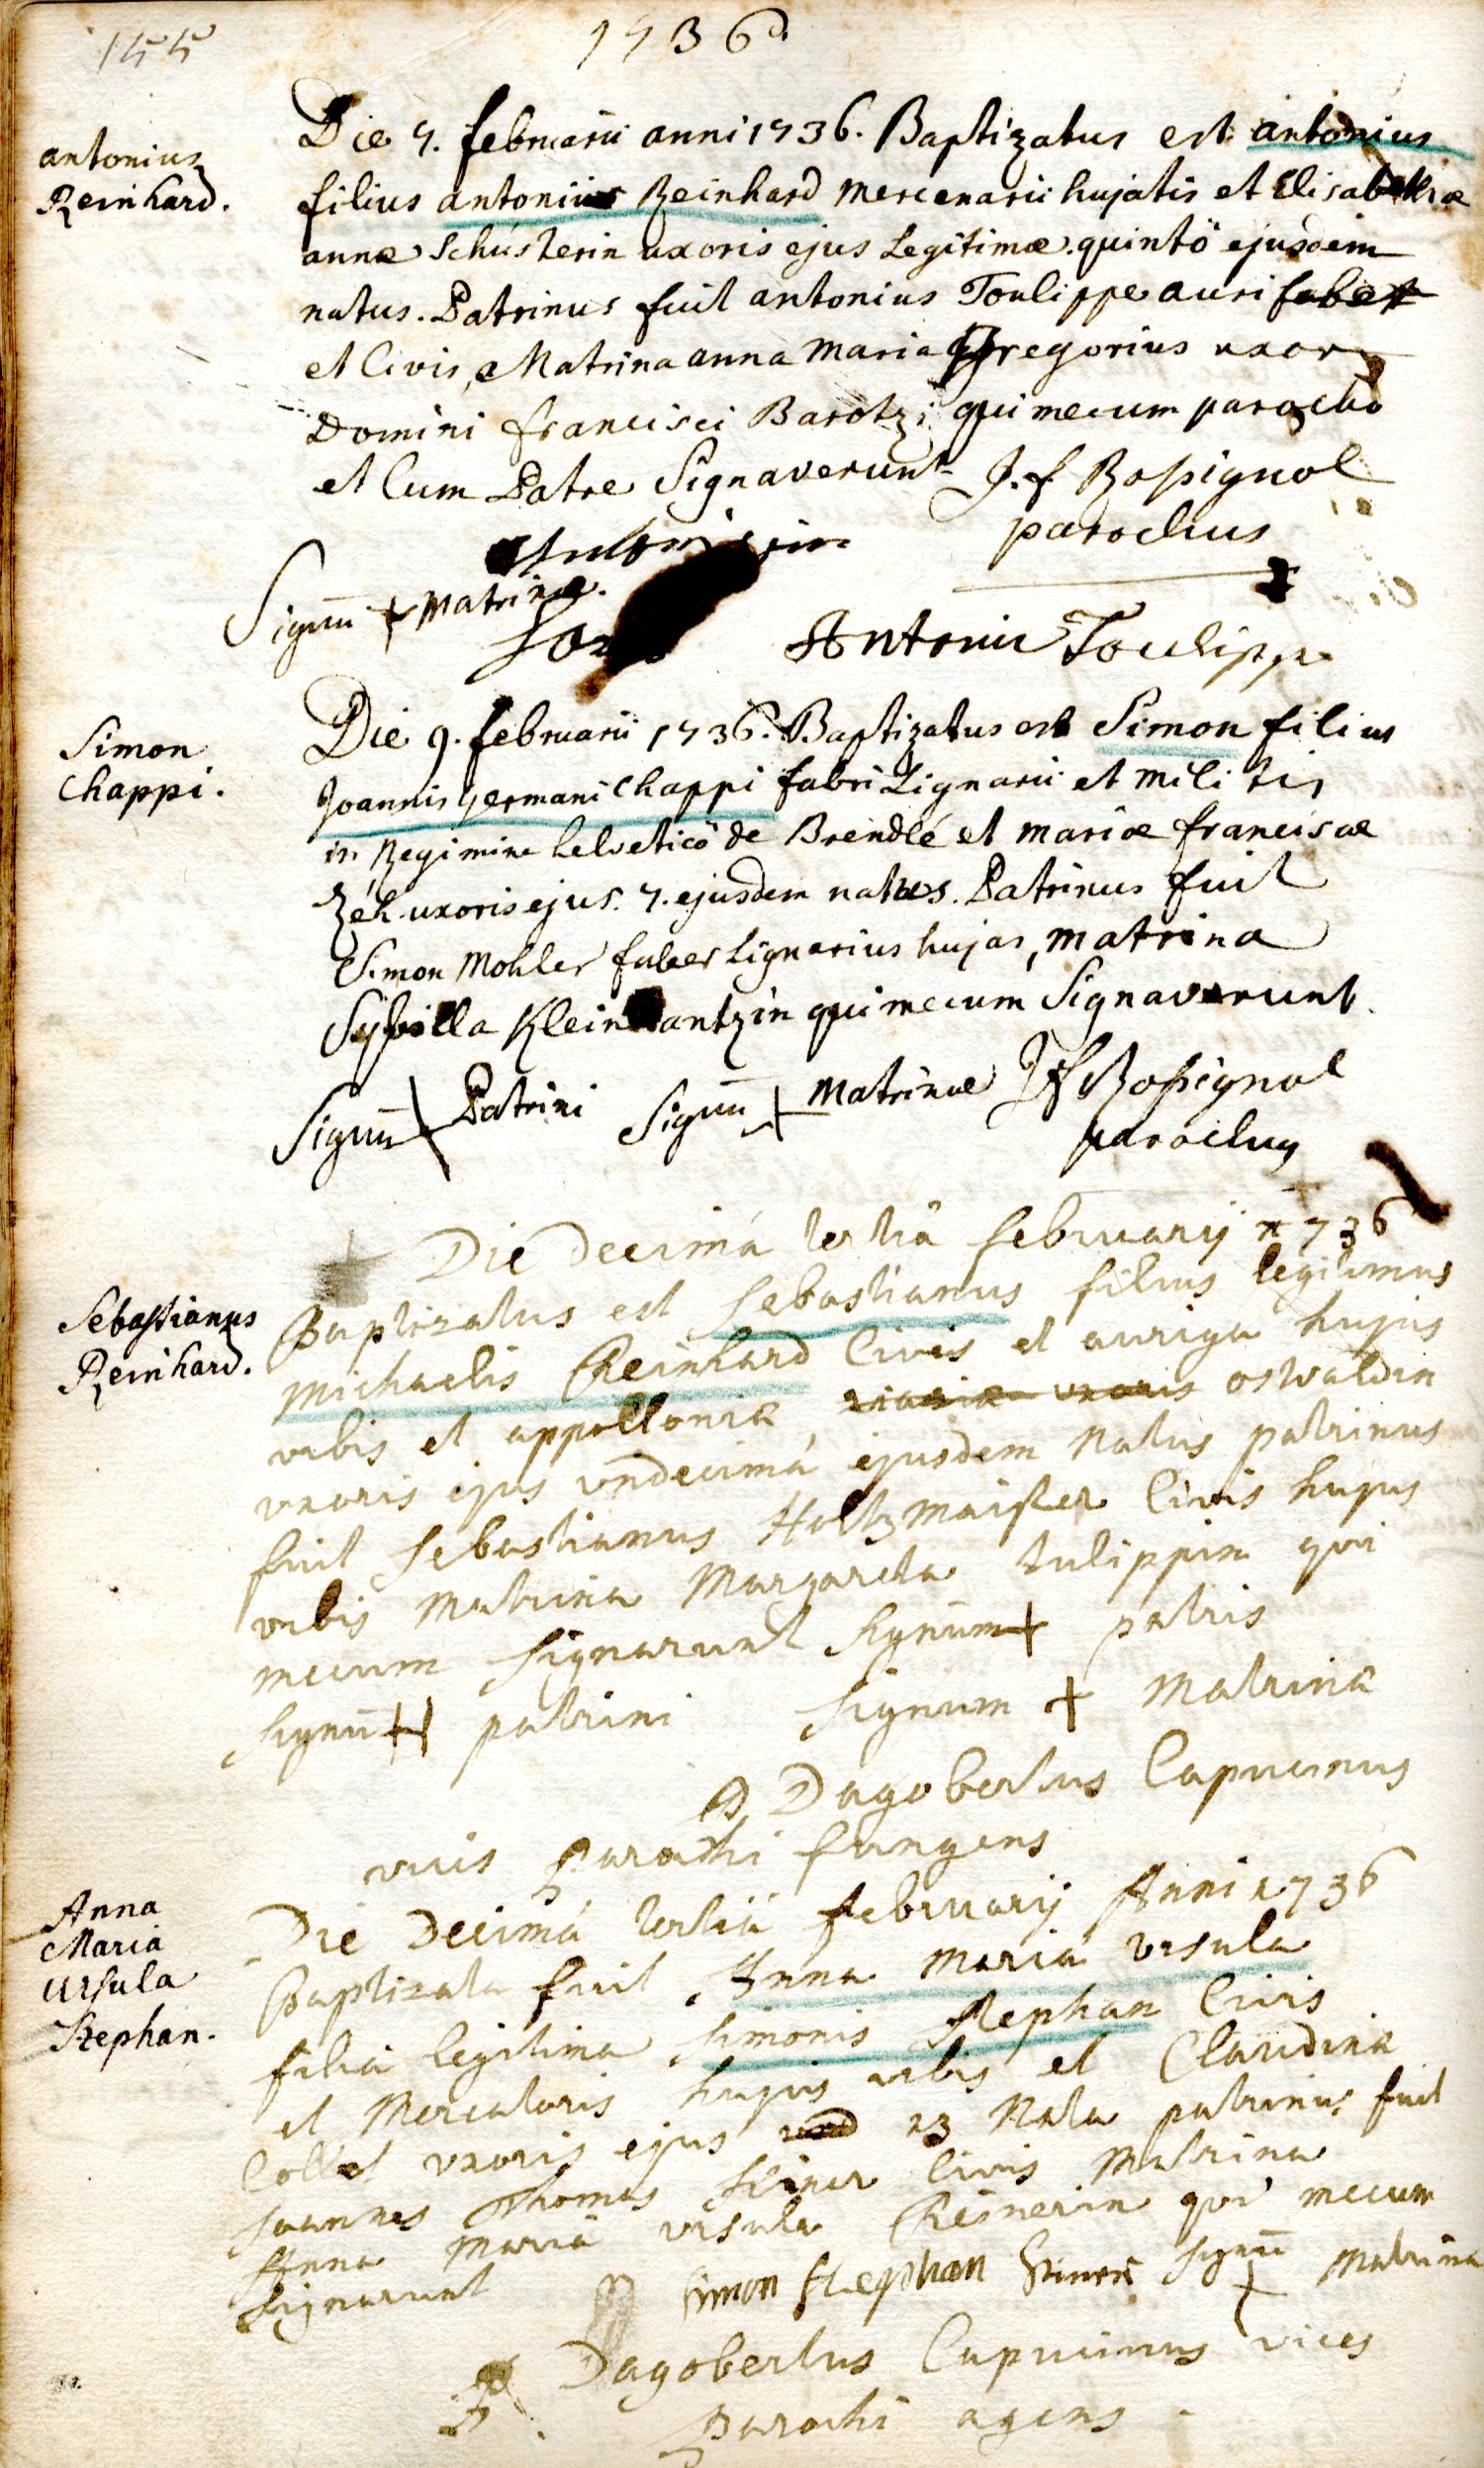 155
1736.
antonius
Reinhard.
Die 7. februarii anni 1736. Baptizatus est antonius
filius antonii Reinhard mercenarii hujatis et Elisabethæ
annæ Schústerin uxoris ejus Legitimæ. quintö ejusdem
natus. Patrinus fuit antonius Toulippe aurifaber
et Civis, Matrina anna maria Gregorius uxor
Domini francisci Barotzi qui mecum parocho
et Cum Patre Signaverunt J. f Rossignol
parochus
Signū + matrinæ.
Antoni Toulippe
Simon
Chappi.
Die 9. februarii 1736. Baptizatus est Simon filius
Joannis germani Chappi fabri Lignarii et militis
in Regimine helveticö de Brendlé et mariæ franciscæ
Zéh uxoris ejus. 7. ejusdem natus. Patrinus fuit
Simon Mohler faber Lignarius hujas, matrina
Sybilla Klein antzin qui mecum Signaverunt.
Signū + Patrini Signū + matrinæ Jf Rossignol
parochus
Sebastianus
Reinhard.
Die decimá tertiâ februarij 1736
Baptizatus est sebastianus filius legitimus
michaelis Reinhard Civis et auriga hujus
urbis et appolloniæ, oswaldin
uxoris ejus undecimá ejusdem natus patrinus
fuit sebastianus Holtzmaister Civis hujus
urbis matrina Margareta tulippin qui
mecum signarunt signum + patris
signū ++ patrini signum + matrinæ
P Dagobertus Capucinus
vicis Parochi fungens
Anna
Maria
Ursula
Stephan.
Die Decimá tertiâ februarij Anni 1736
Baptizata fuit Anna maria ursula
filia legitima simonis stephan Civis
et Mercatoris hujus urbis et Claudinæ
Collet uxoris ejus 13 Nata patrinus fuit
joannes Thomas steiner Civis matrina
Anna maria ursula Reisnerin qui mecum
signarunt Simon Stephan signū + matrinæ
P. Dagobertus Capucinus vices
Parochi agens